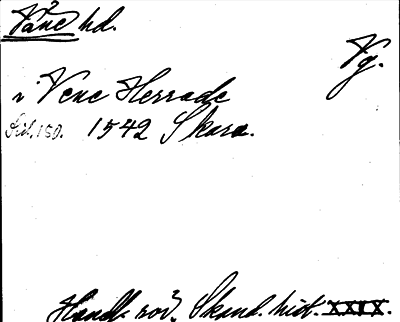 Väne hd.
Vg.
i Vene Herrade
Frib. 150. 1542 Skara.
Handl. rör. Skand. hist. XXIX.